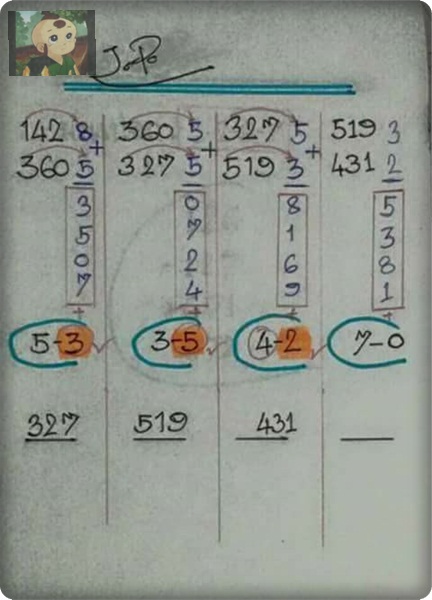 J.P.
142 8 360 5 327 5 519 3
+ + +
360 5 327 5 519 3 431 2
3 0 8 5
5 7 1 3
0 2 6 8
7 4 9 1
+ + + +
5-3 3-5 4-2 7-0
327 519 431